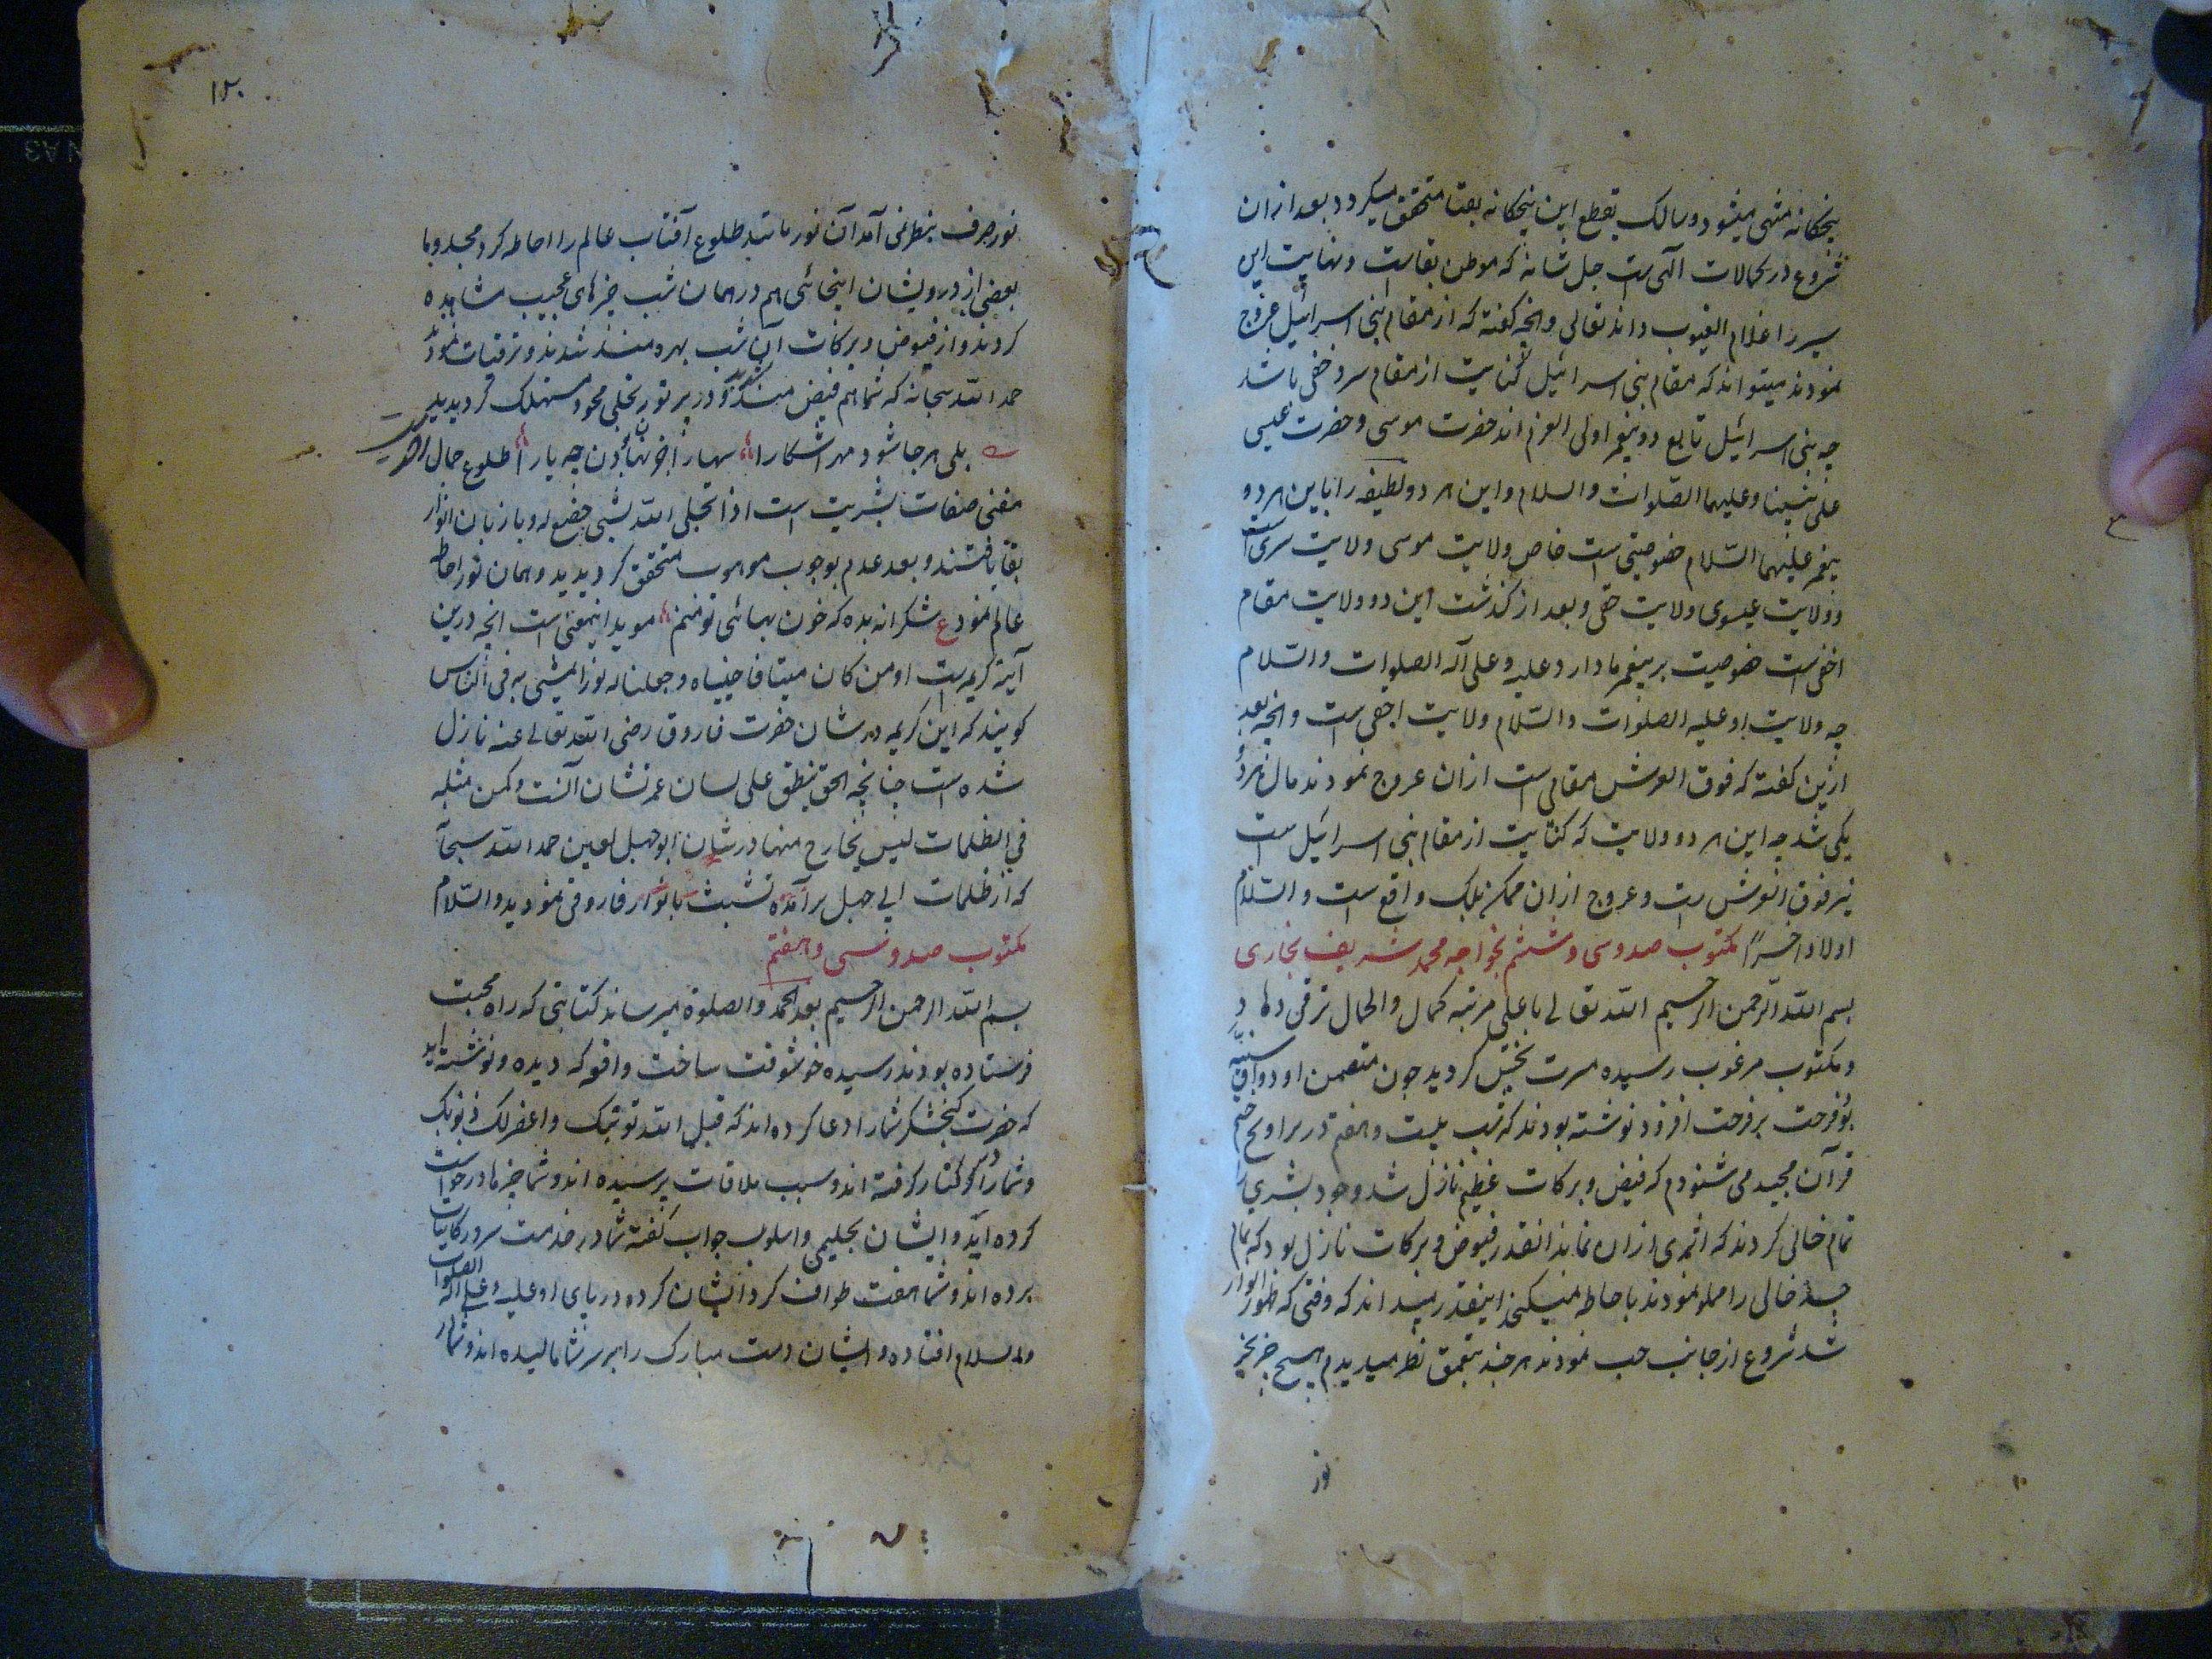 پنجکانه منتهی میشود و سالک بقطع این پنجکانه بفنا متحقق میکردد بعد ازان
شروع در کمالات الهی ست جل شانه که موطن بقاست و نهایت این
سیر را علام الغیوب داند تعالی وانچه کفته که از مقام بنی اسرائیل عروج
نمودند میتواند که مقام بنی اسرائیل کنایت از مقام سر و خفی باشد
چه بنی اسرائیل تابع دو پیغمبر اولی العزم اند حضرت موسی و حضرت عیسی
علی نبینا و علیهما الصلوات والسلام و این هر دو لطیفه را باین هر دو
پیغمبر علیهما السلام خصوصیتی ست خاص ولایت موسی ولایت سری ست
و ولایت عیسوی ولایت خفی و بعد از کذشت این دو ولایت مقام
اخفی ست خصوصیت بر پیغمبر ما دارد علیه و علی آله الصلوات والسلام
چه ولایت او علیه الصلوات والسلام ولایت اخفی ست وانچه بعد
ازین کفته که فوق العرش مقامی ست ازان عروج نمودند مال هر دو
یکی شد چه این هر دو ولایت که کنایت از مقام بنی اسرائیل ست
نیز فوق العرش ست و عروج ازان ممکن بلک واقع ست والسلام
اولا و آخرا مکتوب صد و سی و ششم بخواجه محمد شریف بخاری
بسم الله الرحمن الرحیم الله تعالی باعلی مرتبه کمال والکمال ترقی دهاد
و مکتوب مرغوب رسیده مسرت بخش کردید چون متضمن اذواق سنیه
بود فرحت بر فرحت افزود نوشته بودند که شب بیست و هفتم در تراویح ختم
قرآن مجید می شنودم که فیض و برکات عظیم نازل شد وجود بشری را
تمام خالی کردند که اثری ازان نماند انقدر فیوض و برکات نازل بود که تمام
جسد خالی را مملو نمودند باحاطه نمیکنجد اینقدر میداند که وقتی که ظهور انوار
شد شروع از جانب حب نمودند هر چند بتعمق نظر میدیدم هیچ چیز بجز
نور
۱۲۰
نور صرف بنظر نمی آمد آن نور مانند طلوع آفتاب عالم را احاطه کرد مجدد و ما
بعضی از درویشان اینجائی هم در همان شب چیزهای عجیب مشاهده
کردند و از فیوض و برکات آن شب بهره مند شدند و ترقیات نمود
حمد الله سبحانه که شما هم فیض مند و در پرتو تجلی محو و مستهلک کردیدید
بلی هر جا شود مهر آشکارا سها را جز نهان بودن چه یارا طلوع جمال
مفنی صفات بشریت است اذا تجلی الله لشی خضع له و بازبان انوار
بقا یافتند و بعد عدم بوجوب موهوب متحقق کردیدید و همان نور احاطه
عالم نمود ع شکرانه بده که خون بهائی تو منم موید اینمعنی ست انچه درین
آیته کریمه ست اومن کان میتا فاحییناه وجعلنا له نورا یمشی به فی الناس
کویند که این کریمه در شان حضرت فاروق رضی الله تعالی عنه نازل
شده است چنانچه الحق ینطق علی لسان عمر نشان آنست و کمن مثله
فی الظلمات لیس بخارج منها در شان ابوجهل لعین حمد الله سبحانه
که از ظلمات ابی جهل برآمده تشبث بانوار فاروقی نمودید والسلام
مکتوب صد و سی و هفتم
بسم الله الرحمن الرحیم بعد الحمد والصلوة میرساند کتابتی که راه محبت
فرستاده بودند رسیده خوشوقت ساخت واقعه که دیده و نوشته اید
که حضرت کنجشکر شما را دعا کرده اند که قبل الله توبتک واغفر لک ذنوبک
و شما را در کنار کرفته اند و سبب ملاقات پرسیده اند و شما چیزها درخواست
کرده اید و ایشان بحلیمی و اسلوب جواب کفته شما در خدمت سرور کاینات
برده اند و شما هفت طواف کرد ایشان کرده در پای او علیه و علی آله الصلوات
والسلام افتاده و ایشان دست مبارک را بر سر شما مالیده اند و شما را